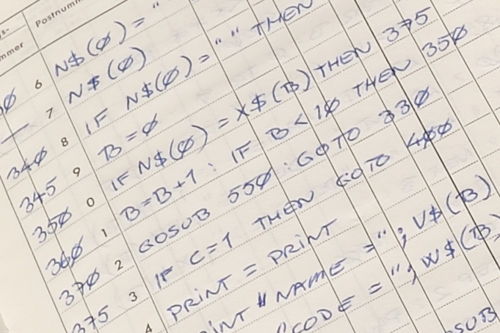 s- Postnumm
mmer
Ø 6 N$(Ø) = "
— 7 N$(Ø)
34Ø 8 IF N$(Ø) = " " THEN
345 9 B=Ø
35Ø 0 IF N$(Ø) = X$(B) THEN 375
36Ø 1 B=B+1 : IF B<1Ø THEN 35Ø
37Ø 2 GOSUB 55Ø : GOTO 33Ø
375 3 IF C=1 THEN GOTO 4ØØ
4 PRINT = PRINT
RINT "NAME =" ; V$(B)
"CODE = " ; W$(B)
OSUB